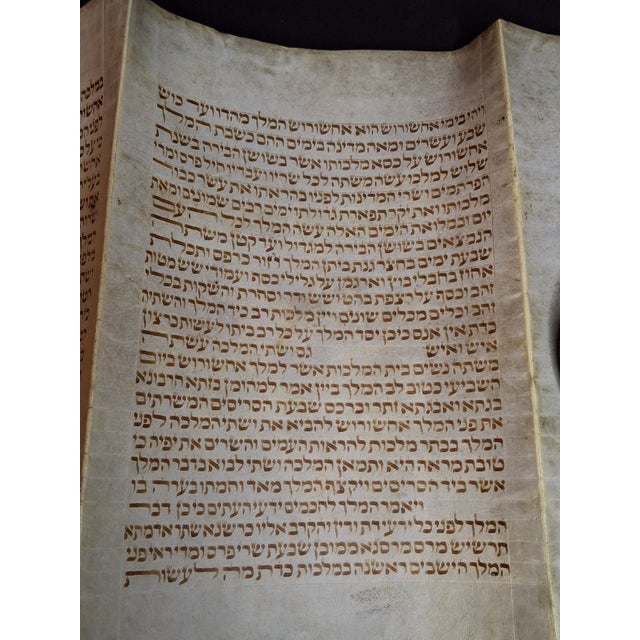 ויהי בימי אחשורוש הוא אחשורוש המלך מהדו ועד כוש
שבע ועשרים ומאה מדינה בימים ההם כשבת המלך
אחשורוש על כסא מלכותו אשר בשושן הבירה בשנת
שלוש למלכו עשה משתה לכל שריו ועבדיו חיל פרס ומדי
הפרתמים ושרי המדינות לפניו בהראתו את עשר כבוד
מלכותו ואת יקר תפארת גדולתו ימים רבים שמונים ומאת
יום ובמלואת הימים האלה עשה המלך לכל העם
הנמצאים בשושן הבירה למגדול ועד קטן משתה
שבעת ימים בחצר גנת ביתן המלך חור כרפס ותכלת
אחוז בחבלי בוץ וארגמן על גלילי כסף ועמודי שש מטות
זהב וכסף על רצפת בהט ושש ודר וסחרת והשקות בכלי
זהב וכלים מכלים שונים ויין מלכות רב כיד המלך והשתיה
כדת אין אנס כי כן יסד המלך על כל רב ביתו לעשות כרצון
איש ואיש גם ושתי המלכה עשתה
משתה נשים בית המלכות אשר למלך אחשורוש ביום
השביעי כטוב לב המלך ביין אמר למהומן בזתא חרבונא
בגתא ואבגתא זתר וכרכס שבעת הסריסים המשרתים
את פני המלך אחשורוש להביא את ושתי המלכה לפני
המלך בכתר מלכות להראות העמים והשרים את יפיה כי
טובת מראה היא ותמאן המלכה ושתי לבוא בדבר המלך
אשר ביד הסריסים ויקצף המלך מאד וחמתו בערה בו
ויאמר המלך לחכמים ידעי העתים כי כן דבר
המלך לפני כל ידעי דת ודין והקרב אליו כרשנא שתר אדמתא
תרשיש מרס מרסנא ממוכן שבעת שרי פרס ומדי ראי פני
המלך הישבים ראשנה במלכות כדת מה לעשות